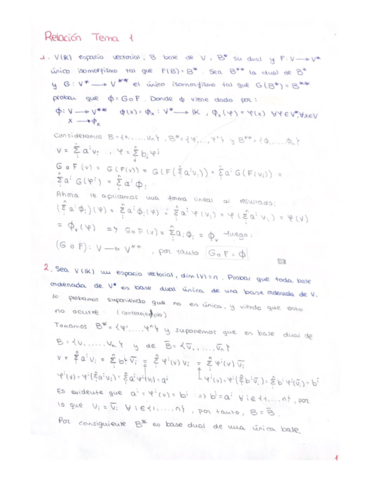 Relación Tema 1
1. V(K) espacio vectorial, B base de V, B* su dual y F: V → V*
único isomorfismo tal que F(B) = B*. Sea B** la dual de B*
y G: V* → V** el único isomorfismo tal que G(B*) = B**
probar que ϕ = G∘F. Donde ϕ viene dado por:
ϕ: V → V** ϕ(x) = ϕₓ : V* → K, ϕₓ(ψ) = ψ(x) ∀ψ∈V*, ∀x∈V
x → ϕₓ
Consideramos B = {v₁, ..., vₙ}, B* = {ψ¹, ..., ψⁿ} y B** = {ϕ₁, ..., ϕₙ}
V = Σ aⁱ vᵢ , ψ = Σ bᵢ ψⁱ
G∘F(v) = G(F(v)) = G(F(Σ aⁱ vᵢ)) = Σ aⁱ G(F(vᵢ)) =
Σ aⁱ G(ψⁱ) = Σ aⁱ ϕᵢ
Ahora le aplicamos una forma lineal al resultado:
(Σ aⁱ ϕᵢ)(ψ) = Σ aⁱ ϕᵢ(ψ) = Σ aⁱ ψ(vᵢ) = ψ(Σ aⁱ vᵢ) = ψ(v)
= ϕᵥ(ψ) ⇒ G∘F(v) = Σ aᵢ ϕᵢ = ϕᵥ luego:
(G∘F): V → V**, por tanto G∘F = ϕ
2. Sea V(K) un espacio vectorial, dim(V) = n. Probar que toda base
ordenada de V* es base dual única de una base ordenada de V.
lo probamos suponiendo que no es única, y viendo que eso
no ocurre.
Tomamos B* = {ψ¹, ..., ψⁿ} y suponemos que es base dual de
B = {v₁, ..., vₙ} y de B̄ = {v̄₁, ..., v̄ₙ}
v = Σ aⁱ vᵢ = Σ bⁱ v̄ᵢ = Σ ψⁱ(v) vᵢ = Σ ψⁱ(v) v̄ᵢ
ψⁱ(v) = ψⁱ(Σ aⁱ vᵢ) = Σ aⁱ ψⁱ(vᵢ) = aⁱ ψⁱ(v) = ψⁱ(Σ bⁱ v̄ᵢ) = Σ bⁱ ψⁱ(v̄ᵢ) = bⁱ
Es evidente que aⁱ = ψⁱ(v) = bⁱ ⇒ bⁱ = aⁱ ∀ i ∈ {1, ..., n}, por
lo que vᵢ = v̄ᵢ ∀ i ∈ {1, ..., n}, por tanto, B = B̄.
Por consiguiente B* es base dual de una única base.
1